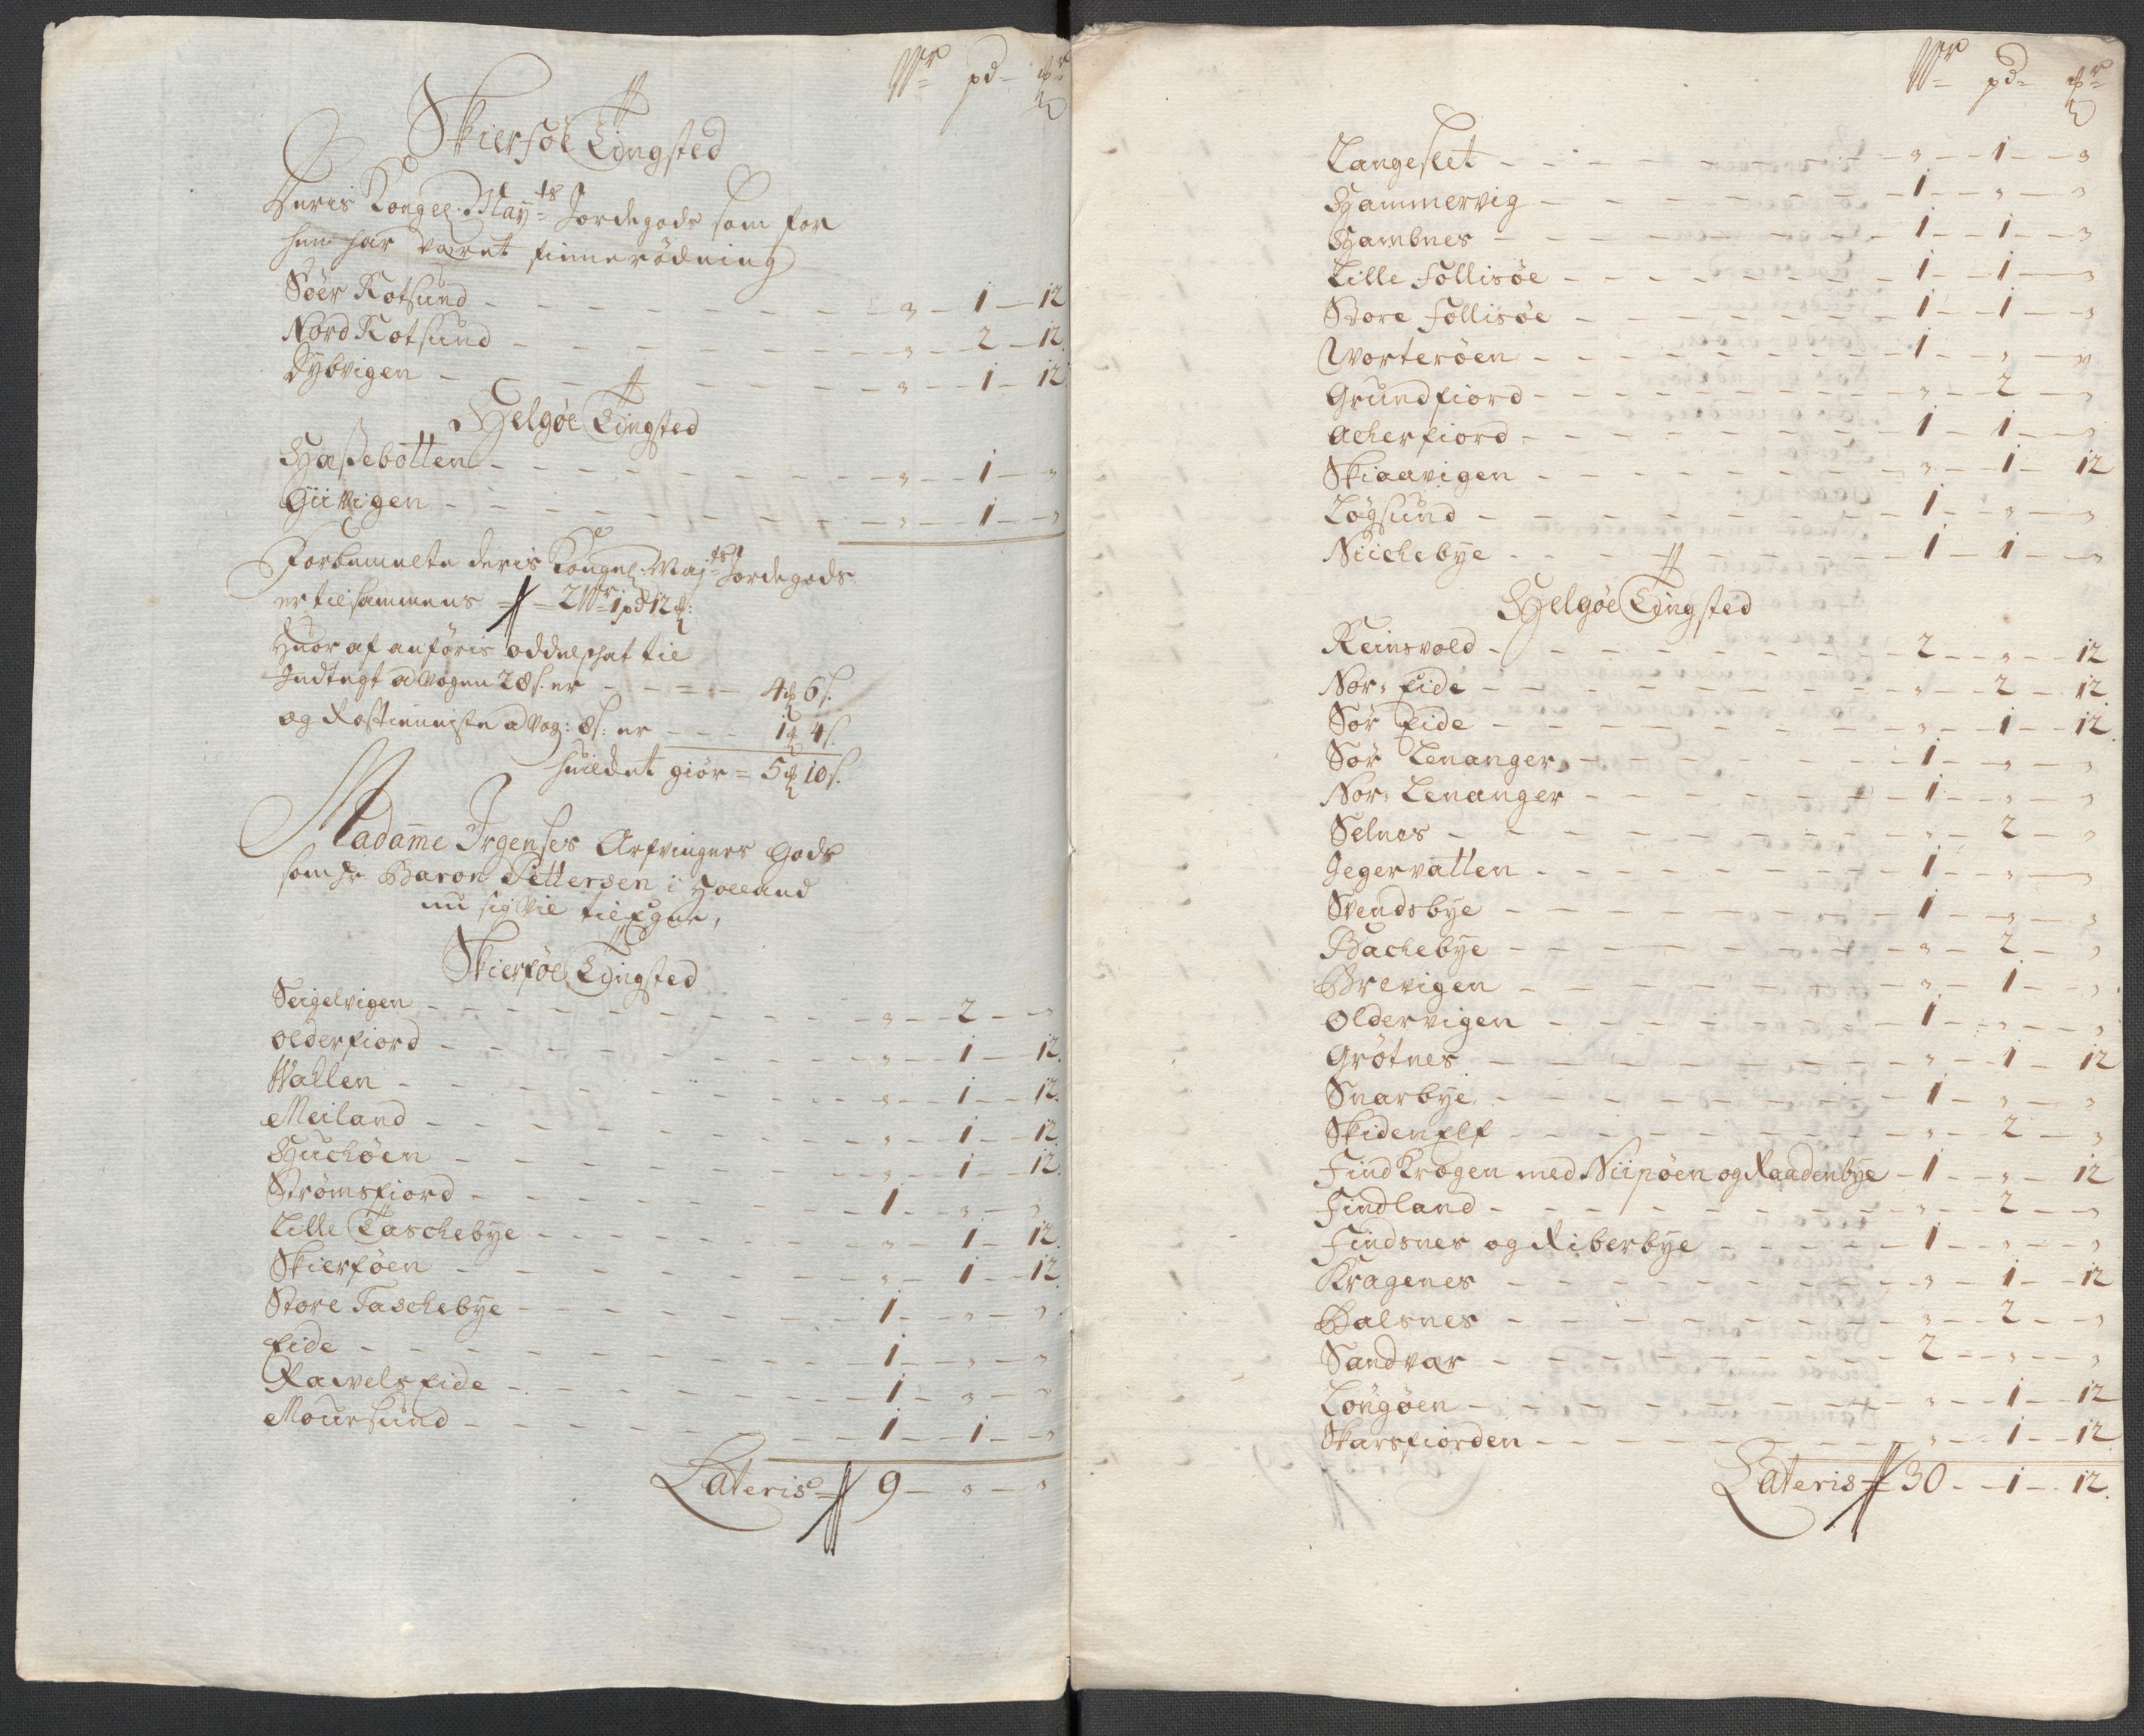 Wr pd ℔r
Skierføe Tingsted
Deris Kongel. Mayts Jordegods som for
hen har været finnerødning
Søer Rotsund - „ - 1 - 12
Nord Rotsund - „ - 2 - 12
Dybvigen - „ - 1 - 12
Helgøe Tingsted
Hassebotten - „ - 1 - „
Giivigen - „ - 1 - „
Forbemelte deris Kongel. Majts Jordegods
er tilsammens = 2 Wr 1 pd 12 ℔:
Huor af anføris oddelschat til
Indtegt a Wogen 28 s. er - 4 d 6 s.
og Rostienniste a Wog: 8 s: er - 1 d 4 s.
huildet giør = 5 d 10 s.
Madame Irgenses Arfvingers Gods
som hr. Baron Pettersen i Holland
nu sig vil tilEgne,
Skierføe Tingsted
Seigelvigen - „ - 2 - „
Olderfiord - „ - 1 - 12
Wallen - „ - 1 - 12
Meiland - „ - 1 - 12
Huchøen - „ - 1 - 12
Strømsfiord - 1 - „ - „
Lille Taschebye - „ - 1 - 12
Skierføen - „ - 1 - 12
Store Taschebye - 1 - „ - „
Eide - 1 - „ - „
Rawelseide - 1 - „ - „
Moursund - 1 - 1 - „
Lateris 9 - „ - „
Wr pd ℔r
Langeslet - „ - 1 - „
Hammervig - 1 - „ - „
Hambnes - 1 - 1 - „
Lille Follisøe - 1 - 1 - „
Store Follisøe - 1 - 1 - „
Worterøen - 1 - „ - „
Grundfiord - „ - 2 - „
Acherfiord - 1 - 1 - „
Skiaavigen - „ - 1 - 12
Løgsund - 1 - „ - „
Niichebye - 1 - 1 - „
Helgøe Tingsted
Reinsvold - 2 - „ - 12
Nor: Eide - „ - 2 - 12
Sør Eide - „ - 1 - 12
Sør Lenanger - 1 - „ - „
Nor: Lenanger - 1 - „ - „
Selnes - „ - 2 - „
Jegervatten - 1 - „ - „
Svendsbye - 1 - „ - „
Bachebye - „ - 2 - „
Brevigen - „ - 1 - „
Oldervigen - 1 - „ - „
Grøtnes - „ - 1 - 12
Snarbye - 1 - „ - „
Skidenelf - „ - 2 - „
Find Krogen med Niipøen og Raadenbye - 1 - „ - 12
Findland - „ - 2 - „
Findsnes og Riberbye - 1 - „ - „
Kragenes - „ - 1 - 12
Balsnes - „ - 2 - „
Sandvær - 2 - „ - „
Løngøen - „ - 1 - 12
Skarsfiorden - „ - 1 - 12
Lateris 30 - 1 - 12